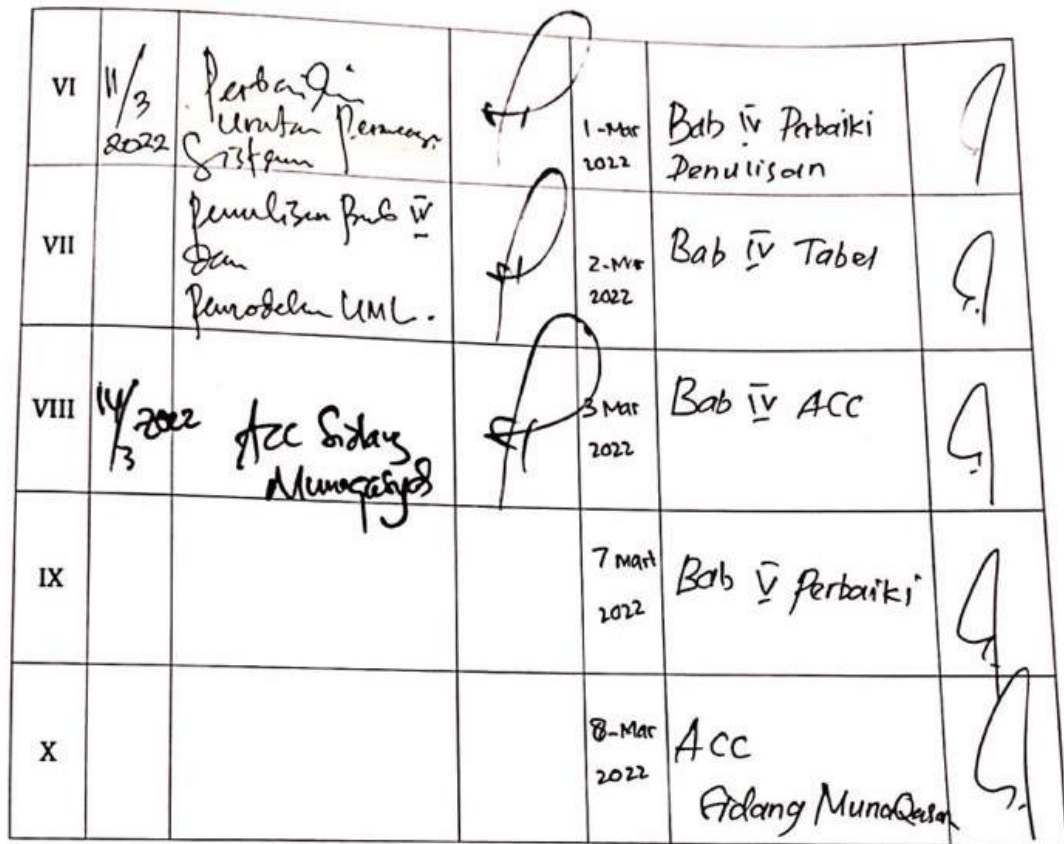 VI
11/3
2022
Perbaiki
Urutan
Sistem
1-Mar
2022
Bab IV Perbaiki
Penulisan
VII
Penulisan Bab IV
Dan
Pemodelan UML.
2-Mar
2022
Bab IV Tabel
VIII
14/3 2022
Acc Sidang
Munaqasyah
3 Mar
2022
Bab IV ACC
IX
7 Mart
2022
Bab V Perbaiki
X
8-Mar
2022
ACC
Sidang MunaQasah